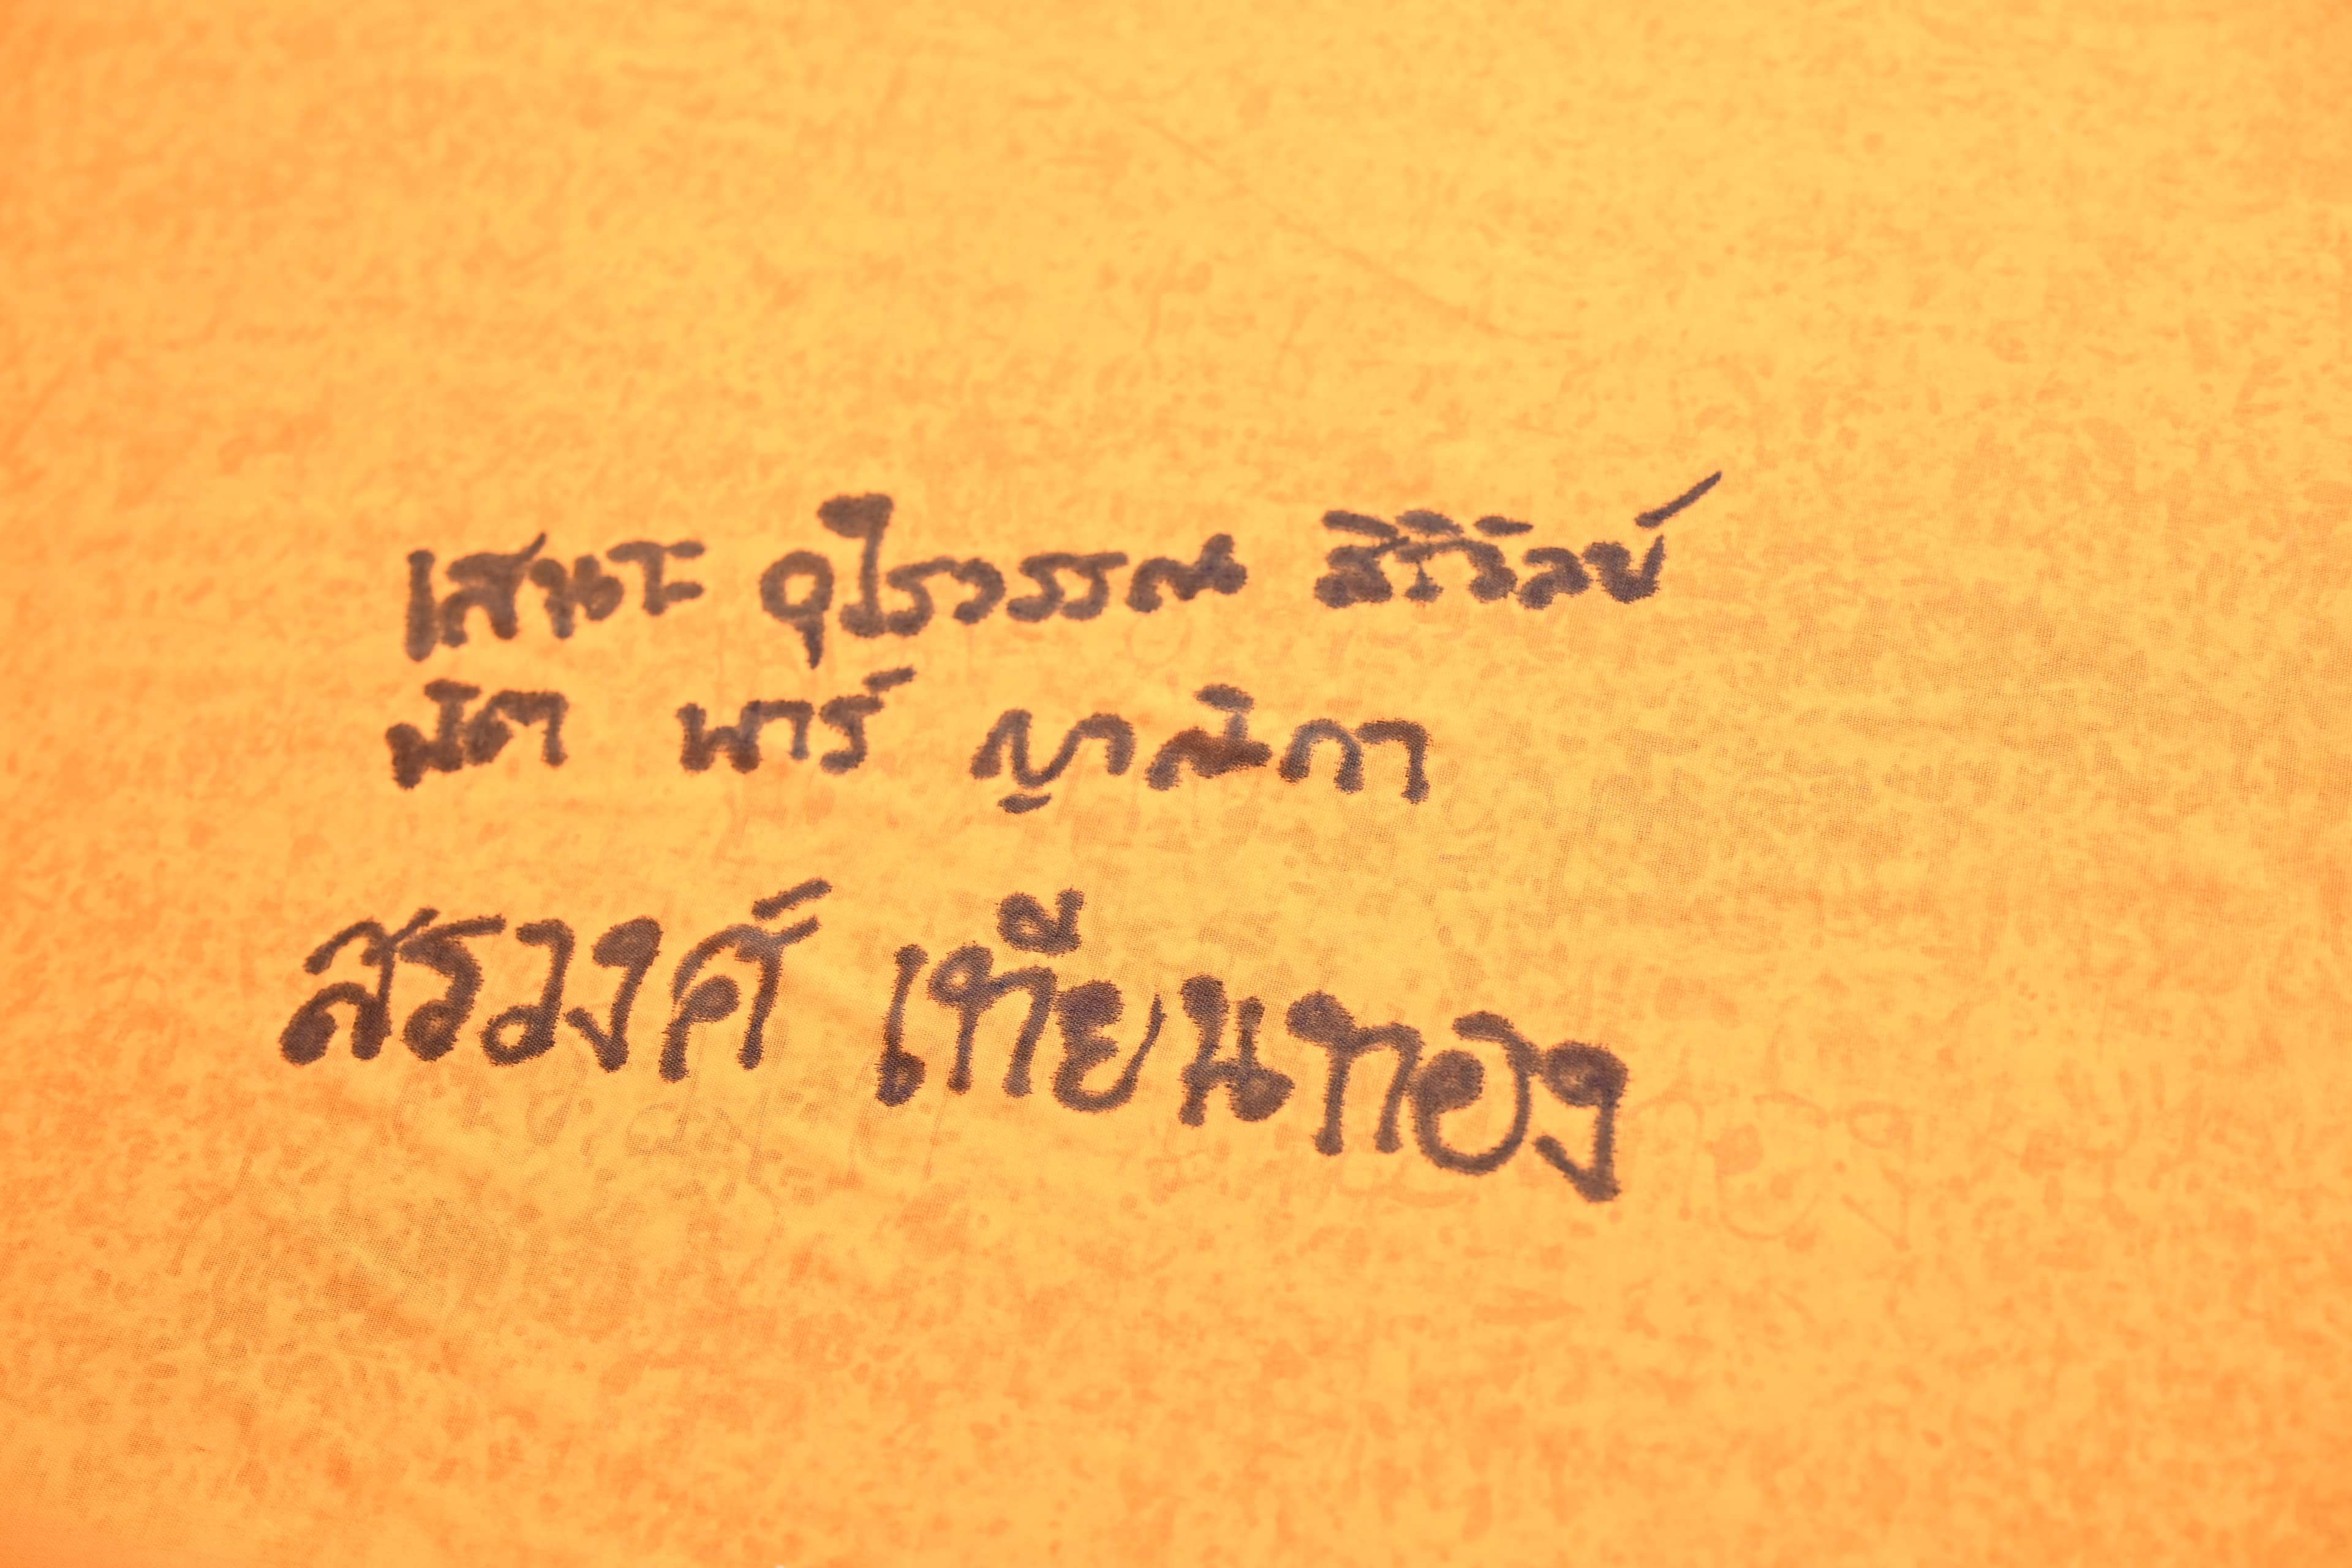 เสนะ อุไรวรรณ สิริวิลย์
นัดา พาร์ ญาณิกา
สรวงศ์ เทียนทอง